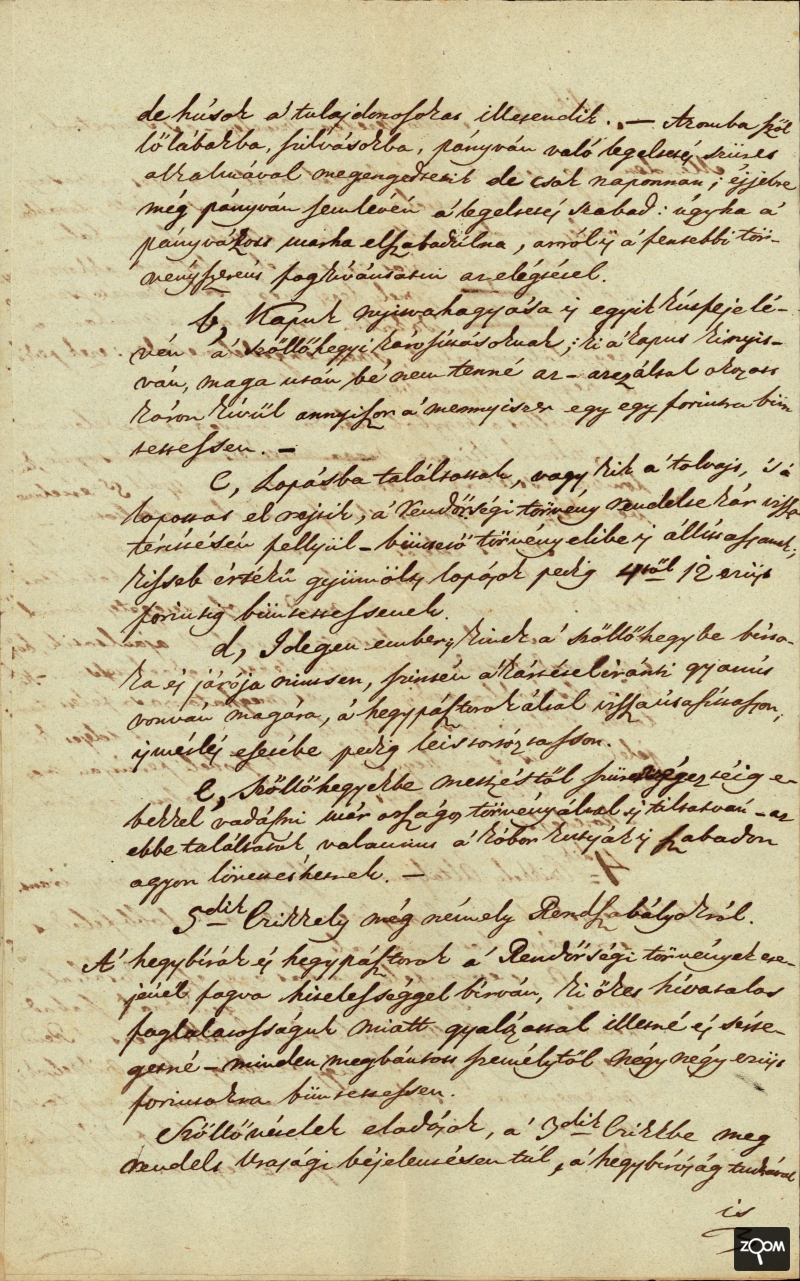 de húsok a' tulajdonosokat illetendik. — Azomba szöl
lőlábakba, szilvásokba, pányván való legeltetés szüret
alkalmával megengedtetik de csak naponnan; éjjelre
még pányván sem lévén a' legeltetés szabad: úgy ha a'
pányvázott marha elszabadúlna, arról is a' fentebbi tör-
vényszerüs fog kivántatni az elégtétel.
b, Kapuk nyitva hagyása is egyik kútfeje lé-
vén a' szőllőhegyi károsításoknak; ki a' kaput kinyit-
ván, maga után bé nem tenné az – azáltal okozott
káron kívűl annyiszor a' mennyiszer egy egy forintra bün
tettessen. —
C, Lopásba találtattak, vagy kik a' tolvajt, 's a'
lopottat el rejtik, a' Rendőrségi törvény rendelte kár vissza
térítésén fellyül – büntető törvény elibe is állíttassanak;
kissebb értékű gyümölts lopások pedig 4től 12 ezüst
forintig büntettessenek.
d, Idegen ember, kinek a' szőllőhegybe birto-
ka és járója nintsen, szintén a' kártétel iránti gyanút
vonván magára, a' hegypásztorok által visszaútasíttasson,
ismétlés esetébe pedig leis tartóztasson.
e, Szőllőhegyekbe metszéstől szüret végeztéig e-
bekkel vadászni már országos törvény által is tiltatván – az
ebbe találtatók valamint a' kóbor kutyák is szabadon
agyon lövettethetnek. —
5dik Czikkely még némely Rendszabályokról.
A' hegybírák és hegypásztorok a' Rendőrségi törvények ere-
jénél fogva hitelességgel bírván, ki őket hivatalos
foglalatosságuk miatt gyalázattal illetné és sérte-
getné – minden megbántott személytől négy négy ezüst
forintokra büntettessen.
Szőllővételek eladások, a' 3dik Czikkbe meg
rendelt Urasági béjelentésen túl, a' hegybíróság tudtával
is
ZOOM